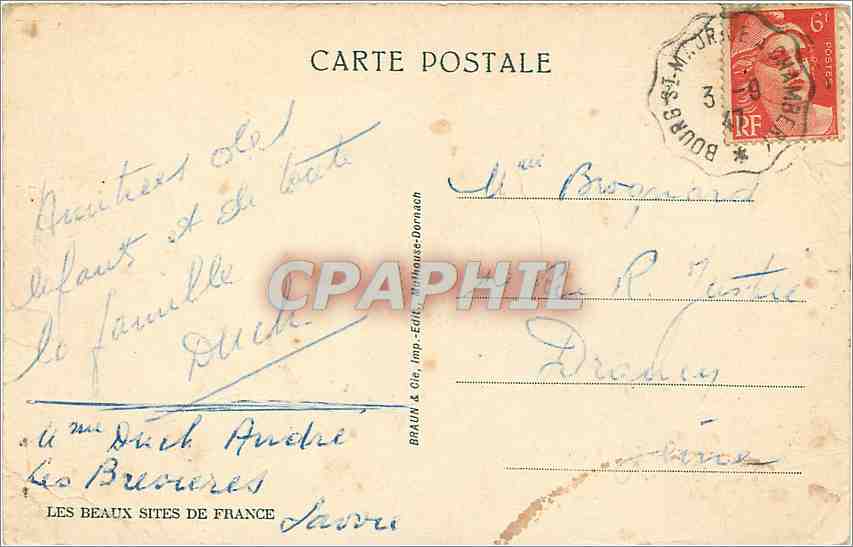 CARTE POSTALE
6f
POSTES
RF
BOURG-ST-MAURICE A CHAMBERY
3 -9
47
Amitiées des
enfants et de toute
la famille
Duch
Mme Duch André
Les Brevieres
Savoie
LES BEAUX SITES DE FRANCE
BRAUN & Cie, Imp.-Edit., Mulhouse-Dornach
CPAPHIL
Mme Brognard
Rue R. Justice
Drancy
Seine